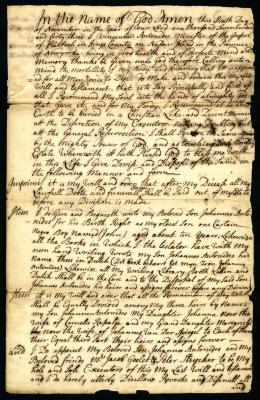 In the Name of God Amen this Sixth day
of November in the Year of our Lord one thousand Seven hund
and forty three I Vincentius Antonides Minister of the Gospel
at Flatbush in Kings County on Nassau Island in the Province
of New york being in good health and of Perfect Mind and
Memory thanks be given unto God therefore calling unto
Mind the mortality of my Body and knowing that it is appoint
ed for all Men once to Dye do Make and ordain this my last
Will and testament, that is to Say Principally and first of
all I Recommend my Soul into the hand of almighty God
that gave it; and My Body I Recommend it to the
Earth to be buried in a Christian Like and Decent manner
at the Discretion of my Executors nothing doubting but
at the General Resurrection I Shall Receive the Same again
by the Mighty Power of God; and as touching my Worldly
Estate Wherewith it hath Pleased God to bless me With
in this Life I Give Devise and Dispose of the Same in
the following Manner and form
Imprimis it is my will and order that after my Decease all my
Lawfull Debts and funeral Shall be Paid out of my Estate
before any Division is made
Item I Devise and Bequeath unto my Beloved Son Johannes Anto
nides for his Birth Right as my Eldest Son one Certain
Negro Boy Named John aged about ten Years,
all the Books in Which I the testator have with my
own hand Writing Wrote my Son Johannes Antonides his
Name then in Dutch (
Antonides) Likewise all my Writing
Johannes Antonides his heirs and assigns forever
Item it is my Will and order that all the Remainder of my Estate
Shall be Equally Divided among My three heirs by Names
my Son Johannes Antonides My Daughter Johanna Now the
Wife of Cornelis Rapalje and my Grand Daughter Margrietie
now the Wife of Johannes Lott to Each and
their Equal third Part their heirs and assigns forever
and I Do appoint My Beloved Son Johannes Antonides and My
Beloved friends Mr Jacob and Peter to be My
hole and Sole Executors of this My Last Will and testament
and I Do hereby utterly Disallow Revoke and Disanull all